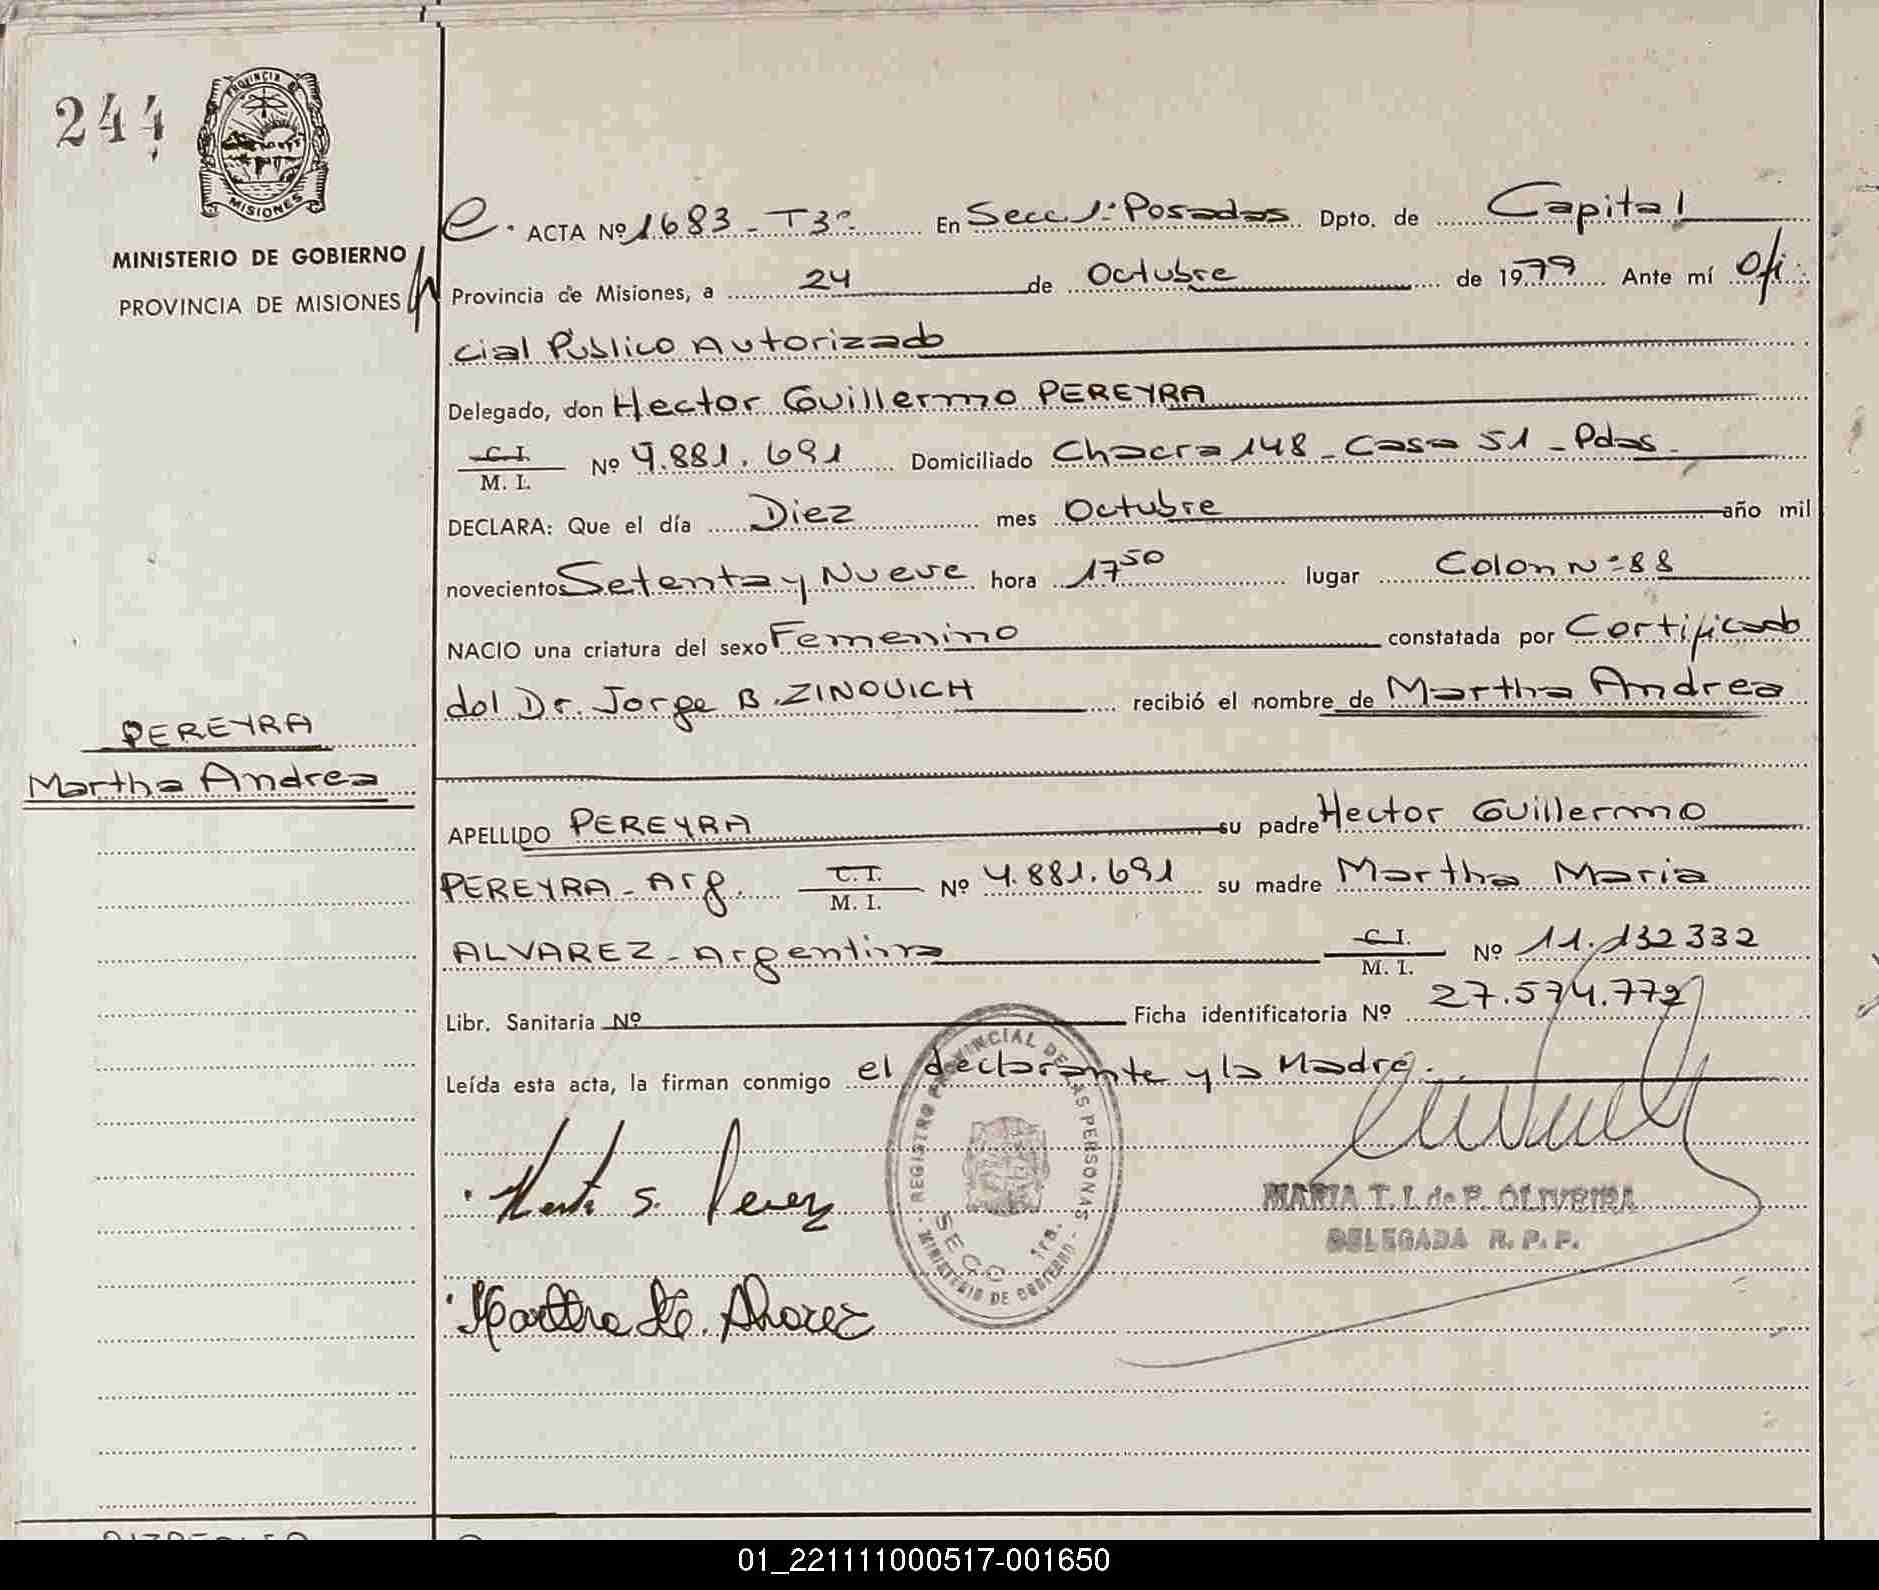 244
PROVINCIA DE
MISIONES
MINISTERIO DE GOBIERNO
PROVINCIA DE MISIONES
e. ACTA Nº 1683 - T3º En Secc 1ª Posadas Dpto. de Capital
Provincia de Misiones, a 24 de Octubre de 1979 Ante mí Ofi
cial Público Autorizado
Delegado, don Hector Guillermo PEREYRA
C.I. / M. I. Nº 4.881.691 Domiciliado Chacra 148 - Casa 51 - Pdas.
DECLARA: Que el día Diez mes Octubre año mil
novecientos Setenta y Nueve hora 17 50 lugar Colon Nº 88
NACIO una criatura del sexo Femenino constatada por Certificado
del Dr. Jorge B. ZINOVICH recibió el nombre de Martha Andrea
PEREYRA
Martha Andrea
APELLIDO PEREYRA su padre Hector Guillermo
PEREYRA - Arg. C.I. / M. I. Nº 4.881.691 su madre Martha Maria
ALVAREZ - Argentina C.I. / M. I. Nº 11.132332
Libr. Sanitaria Nº Ficha identificatoria Nº 27.574.772
Leída esta acta, la firman conmigo el declarante y la Madre.
REGISTRO PROVINCIAL DE LAS PERSONAS
SECC 1ra.
MINISTERIO DE GOBIERNO
MARIA T. I. de P. OLIVEIRA
DELEGADA R. P. P.
Martha M. Alvarez
01_221111000517-001650